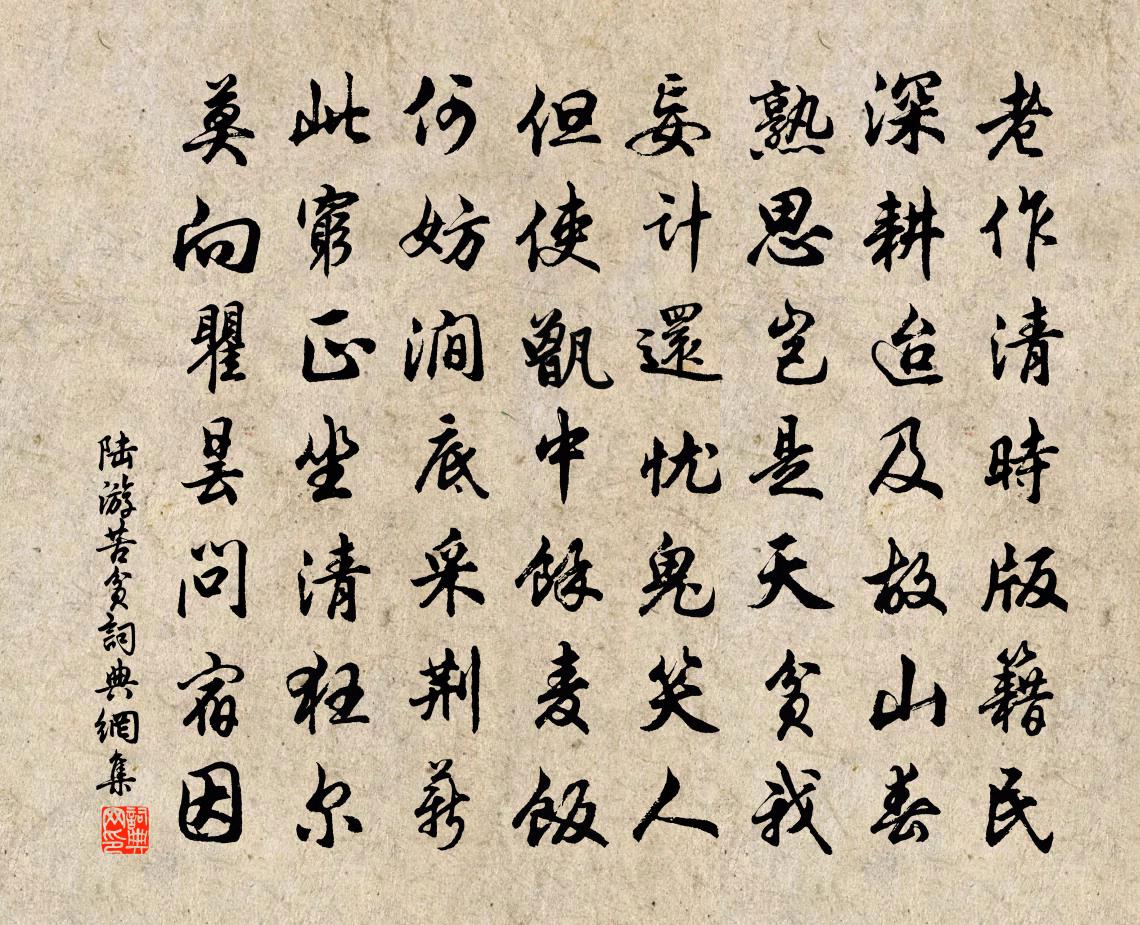 老作清時版籍民
深耕迨及故山春
熟思豈是天貧我
妄計還憂鬼笑人
但使甑中餘麦飯
何妨澗底采荆薪
此窮正坐清狂尔
莫向瞿昙問宿因
陆游苦貧詞典網集
詞典網印